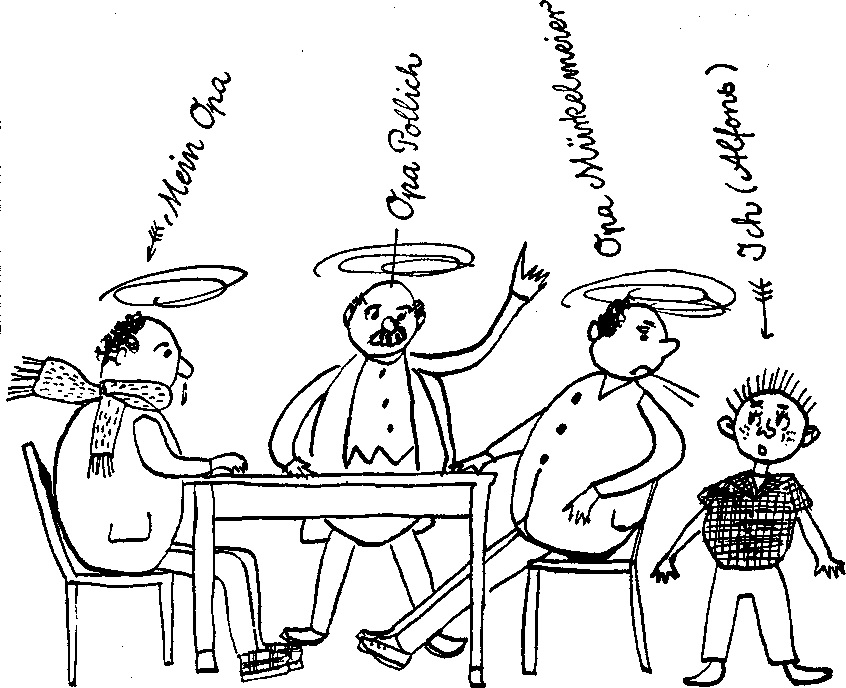 Mein Opa
Opa Pollich
Opa Mürkelmeier
Ich (Alfons)